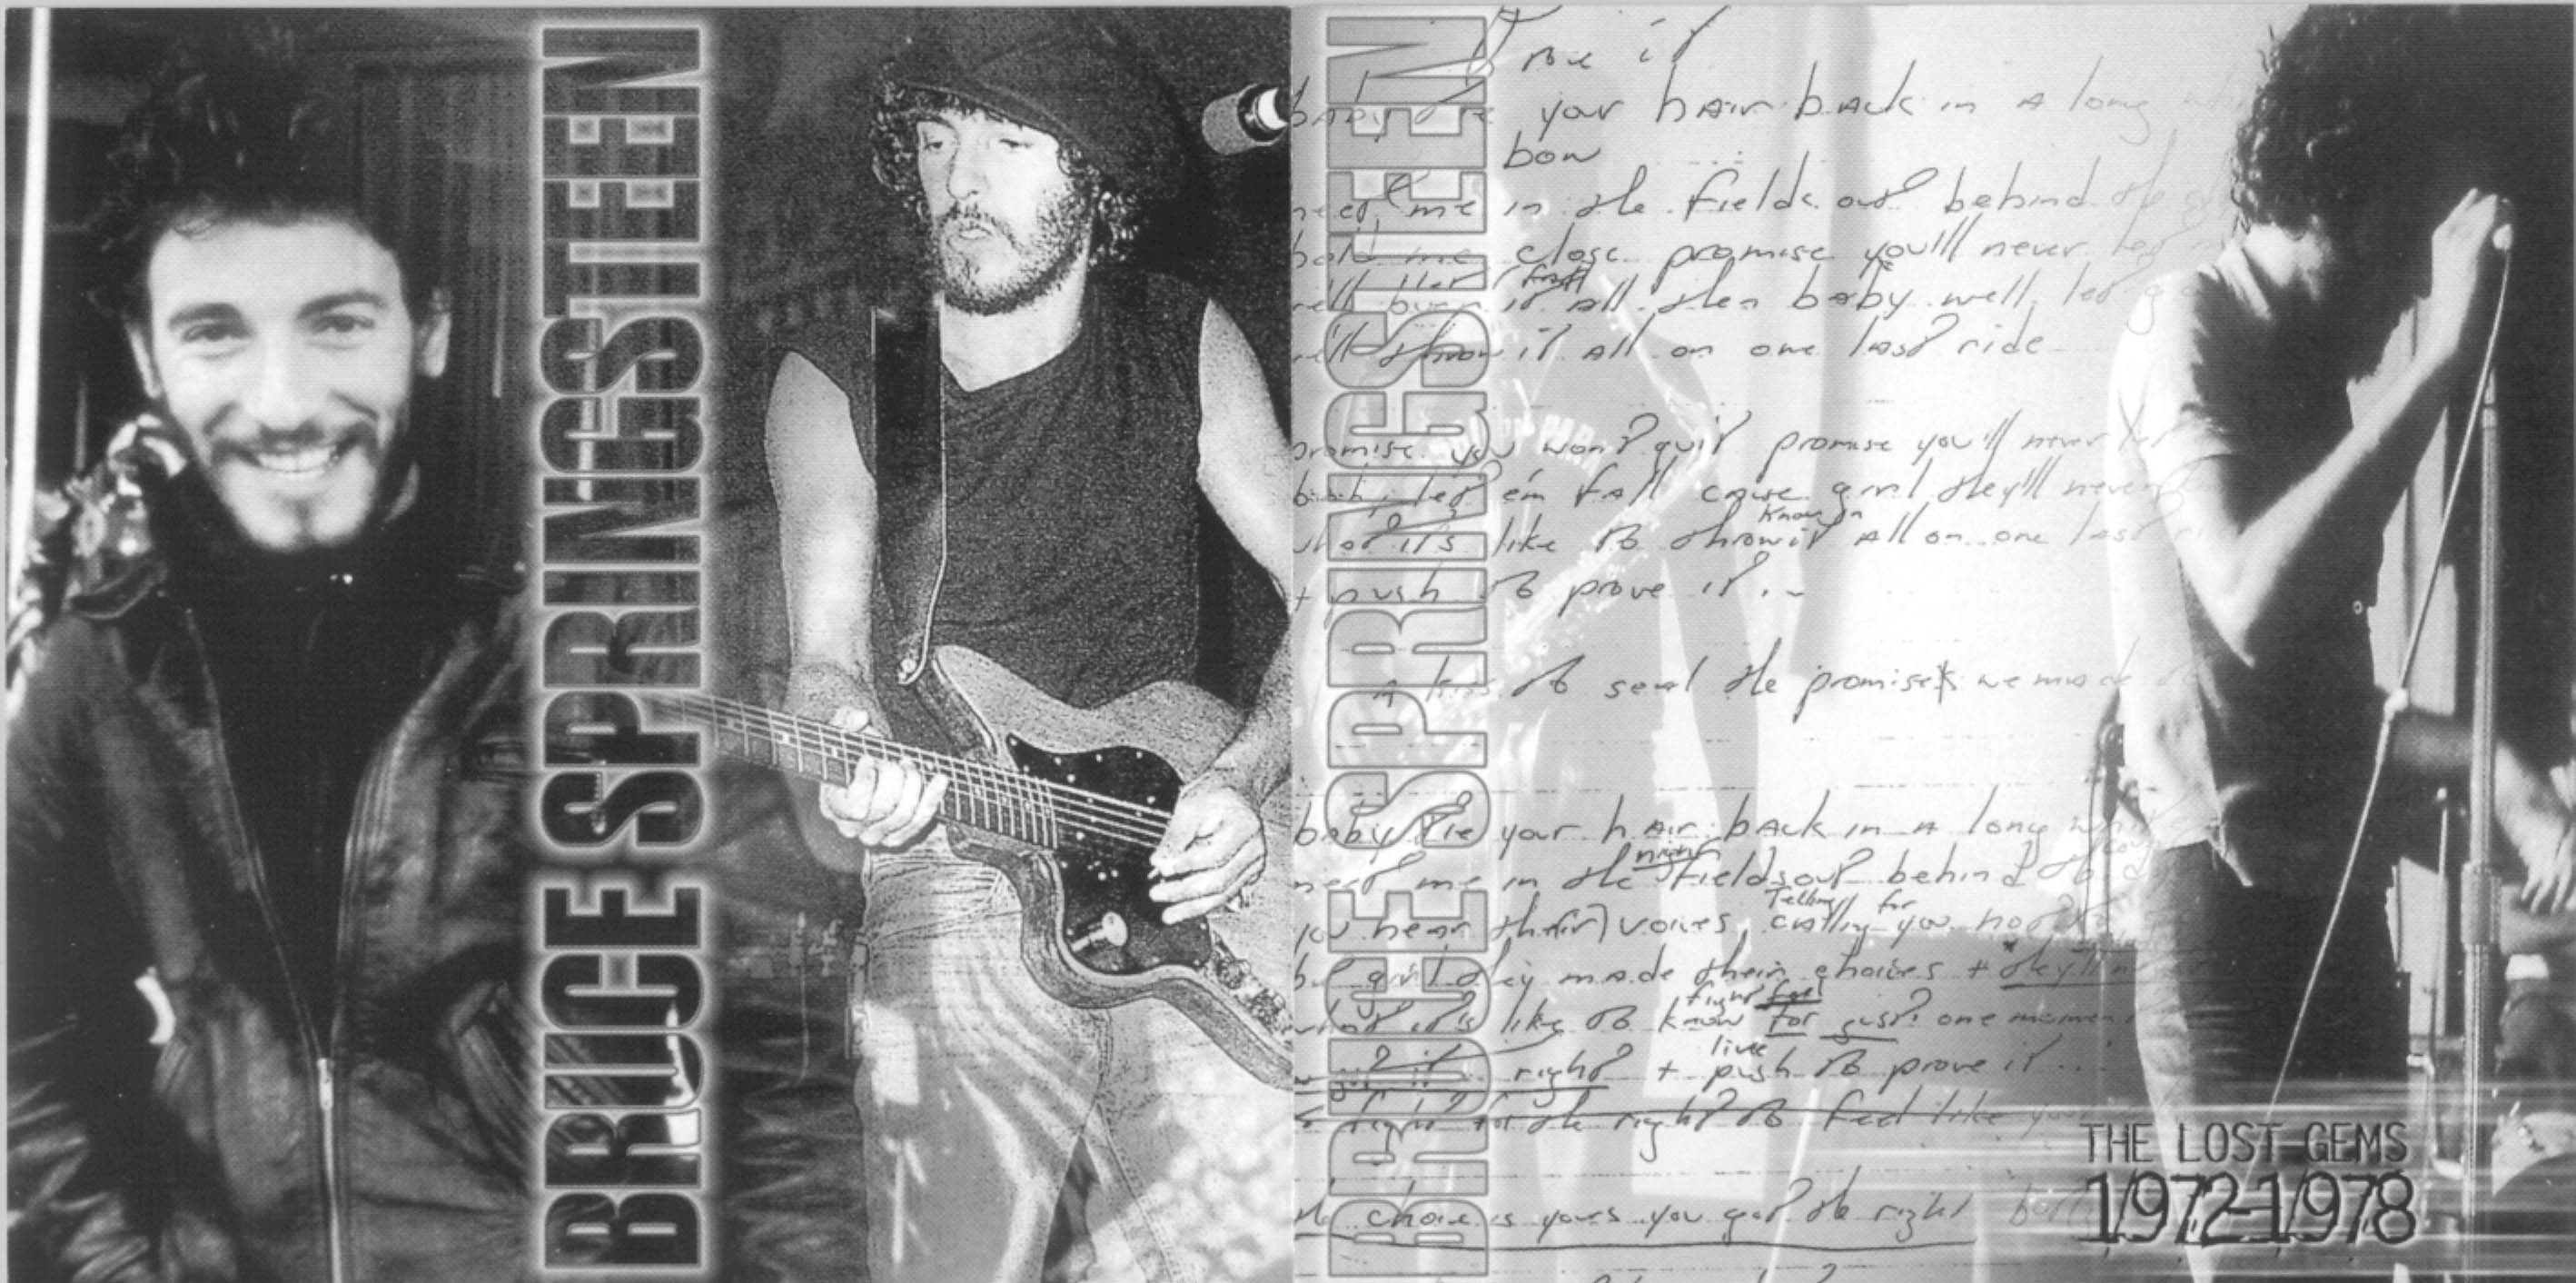 BRUCE SPRINGSTEEN
BRUCE SPRINGSTEEN
me it
baby tie your hair back in a long
bow
meet me in the fields out behind the
hold me close promise you'll never let
fall
we'll burn it all then baby we'll let go
we'll throw it all on one last ride
promise you won't quit promise you'll never let
let em fall cause girl they'll never
know
what it's like to throw it all on one last
+ push to prove it..
A kiss to seal the promises we made
baby tie your hair back in a long white
night
meet me in the fields out behind
Telling for
you hear their voices calling you not
but girl they made their choices + they'll
fight feel
what it's like to know for just one moment
live
it right + push to prove it...
fight for the right to feel like
choice is yours you got the right
THE LOST GEMS
1972-1978